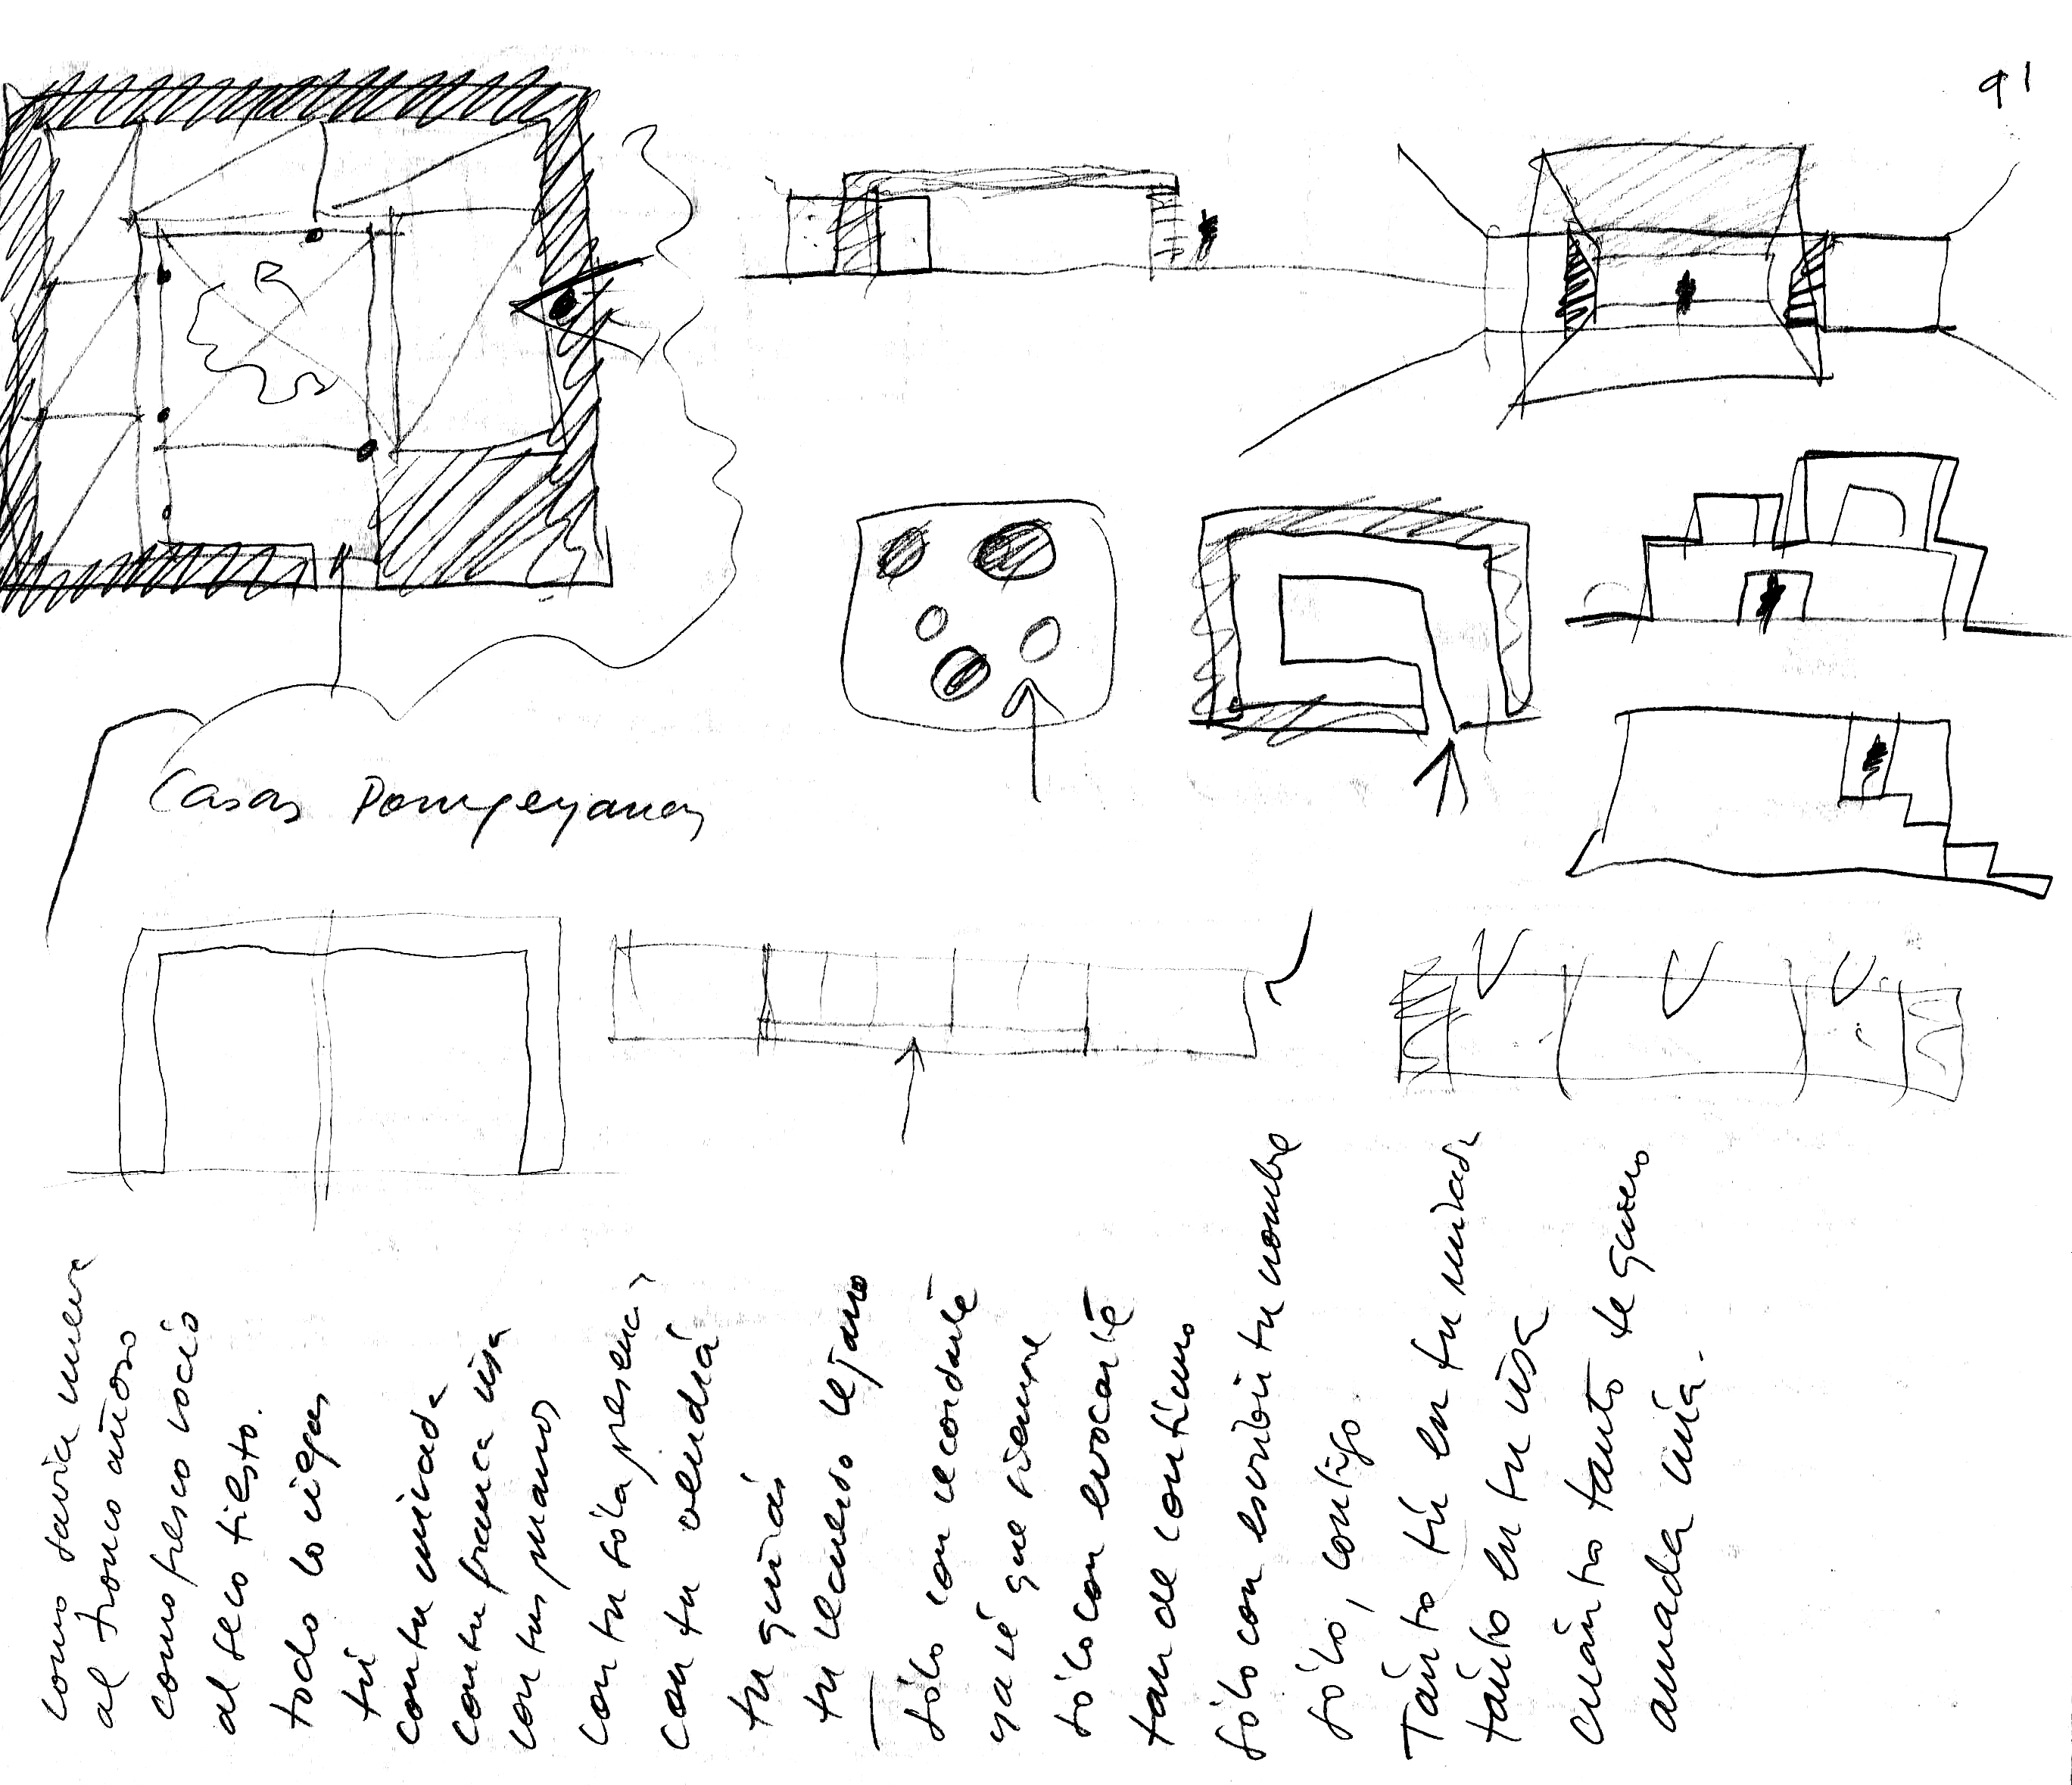 91
Casas Pompeyanas
como savia nueva
al tronco añoso
como fresco rocío
al seco tiesto.
todo lo riegas
tú
con tu mirada
con tu franca risa
con tus manos
con tu sóla presencia
con tu vendrá
tu
tu recuerdo lejano
sólo con recordarte
ya sé que siempre
sólo con evocarte
tan de continuo
sólo con escribir tu nombre
sólo, contigo.
Tánto tú en tu mirada
tánto en tu risa
cuánto tanto te quiero
amada mía.